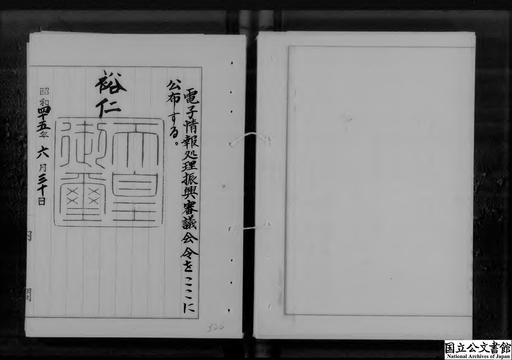 電子情報処理振興審議会令をここに
公布する。
裕仁
天皇
御璽
昭和四十五年六月三十日
326
国立公文書館
National Archives of Japan